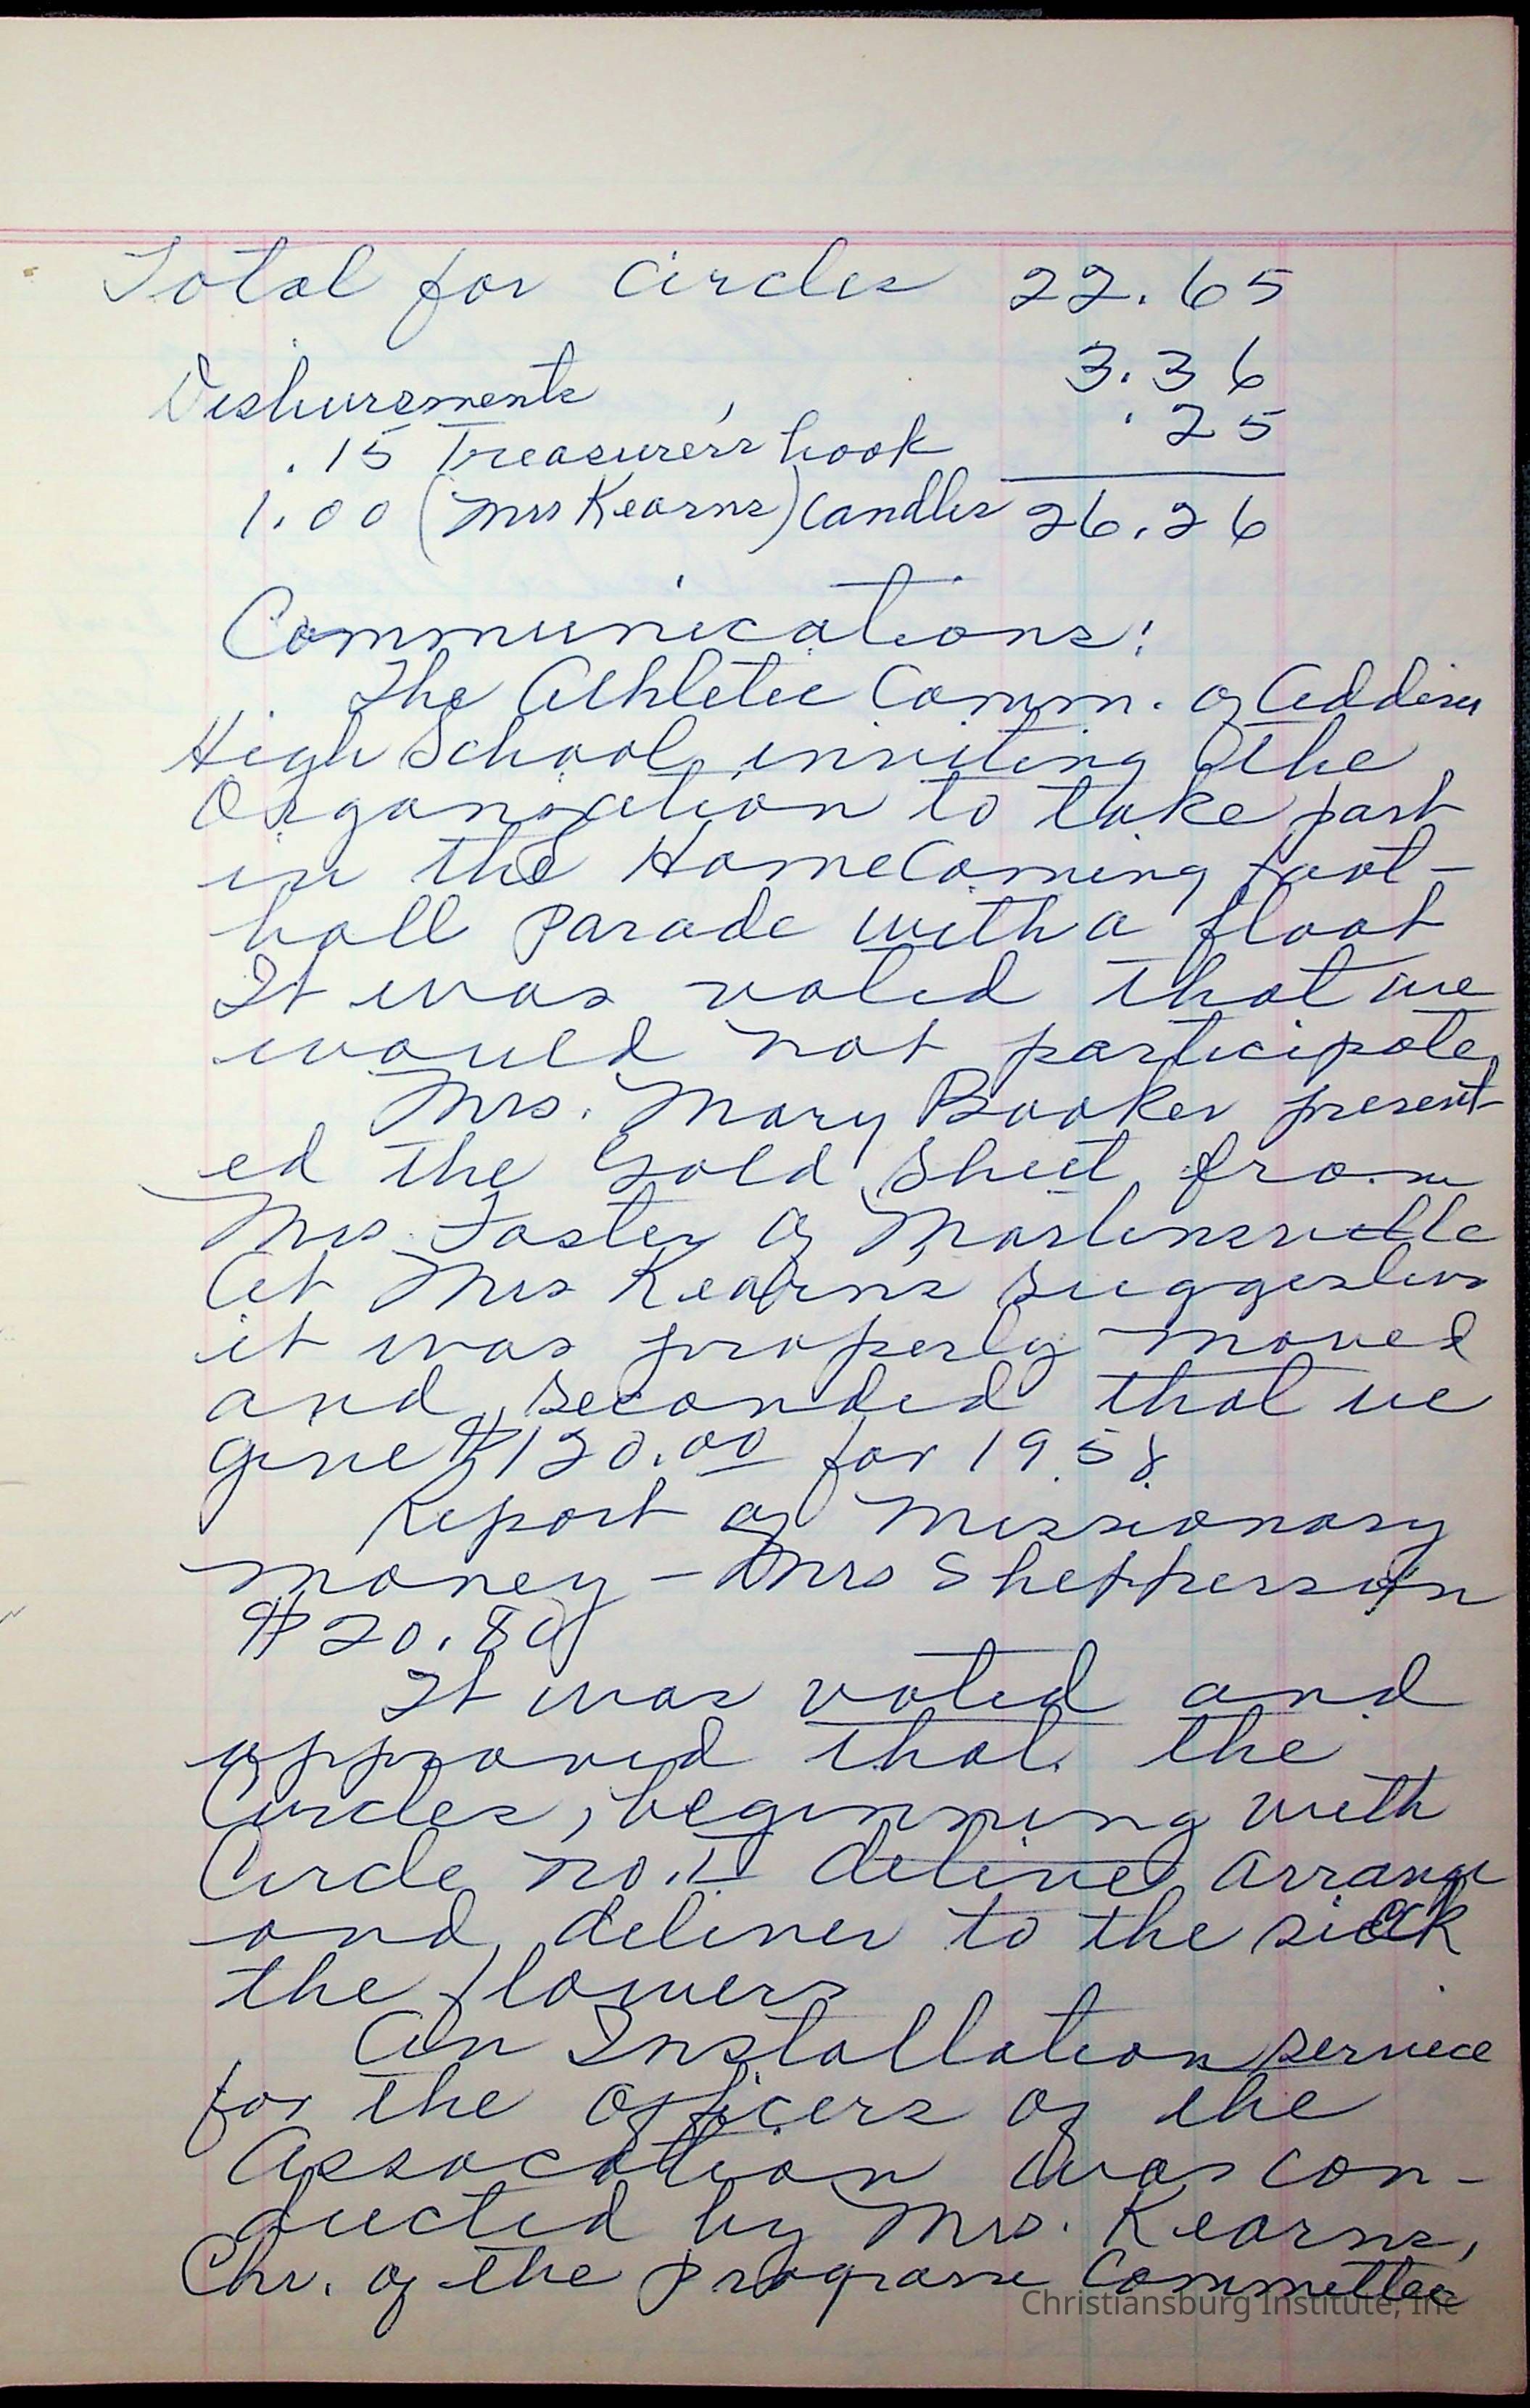 Total for Circles 22.65
3.36
Disbursments
.25
.15 Treasurer's book
1.00 (Mrs Kearns) Candles 26.26
Communications:
The Athletic Comm. of Addison
High School, inviting the
Organization to take part
in the HomeComing foot-
ball parade with a float
It was voted that we
would not participate,
Mrs. Mary Booker present-
ed the Gold Sheet from
Mrs. Foster of Martinsville
At Mrs Kearns suggestion
it was properly moved
and seconded that we
give $120.00 for 1958.
Report of Missionary
money - Mrs Shepperson
$20.80
It was voted and
approved that the
Circles, beginning with
Circle no. I deliver arrange
and deliver to the sick
the flowers
An Installation service
for the officers of the
Assocation was con-
ducted by Mrs. Kearns,
Chr. of the Program Committee
Christiansburg Institute, Inc